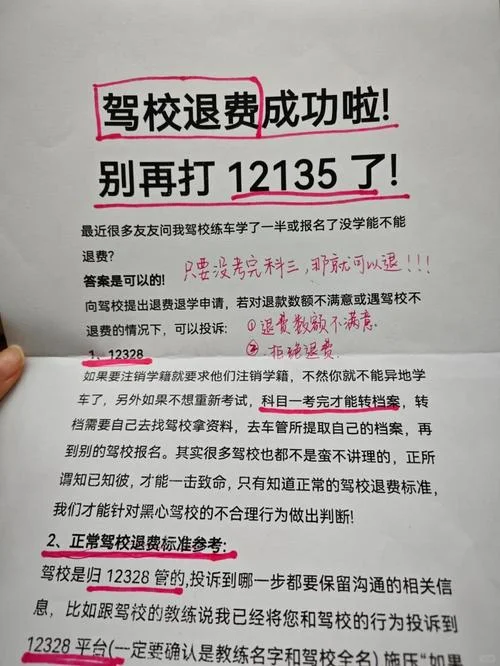 驾校退费成功啦!
别再打 12135 了!
最近很多友友问我驾校练车学了一半或报名了没学能不能
退费?
只要没考完科三,那就可以退!!!
答案是可以的!
向驾校提出退费退学申请,若对退款数额不满意或遇驾校不
退费的情况下,可以投诉:
①退费数额不满意
1、12328
②拒绝退费
如果要注销学籍就要求他们注销学籍,不然你就不能异地学
车了,另外如果不想重新考试,科目一考完才能转档案,转
档需要自己去找驾校拿资料,去车管所提取自己的档案,再
到别的驾校报名。其实很多驾校也都不是蛮不讲理的,正所
谓知已知彼,才能一击致命,只有知道正常的驾校退费标准,
我们才能针对黑心驾校的不合理行为做出判断!
2、正常驾校退费标准参考:
驾校是归 12328 管的,投诉到哪一步都要保留沟通的相关信
息,比如跟驾校的教练说我已经将您和驾校的行为投诉到
12328 平台(一定要确认是教练名字和驾校全名) 施压"如果